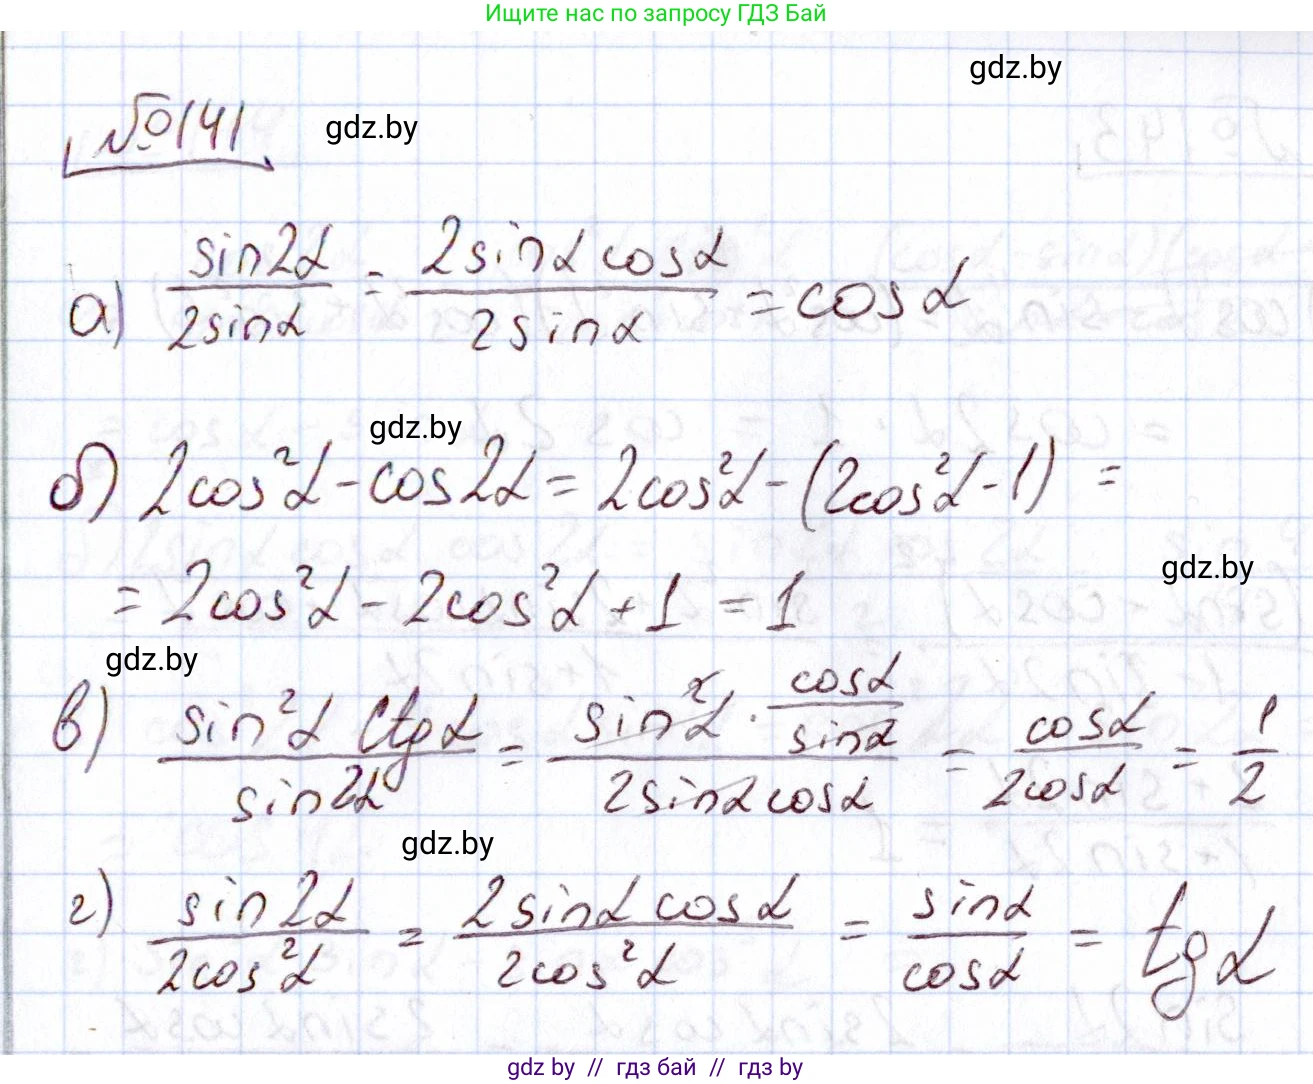 Ищите нас по запросу ГДЗ Бай
gdz.by
№141
gdz.by
а) sin2α / 2sinα = 2sinα cosα / 2sinα = cosα
gdz.by
б) 2cos²α - cos2α = 2cos²α - (2cos²α - 1) =
= 2cos²α - 2cos²α + 1 = 1
gdz.by
gdz.by
в) sin²α ctgα / sin2α = sin²α · cosα / sinα / 2sinα cosα = cosα / 2cosα = 1 / 2
gdz.by
г) sin2α / 2cos²α = 2sinα cosα / 2cos²α = sinα / cosα = tgα
gdz.by // гдз бай // гдз by